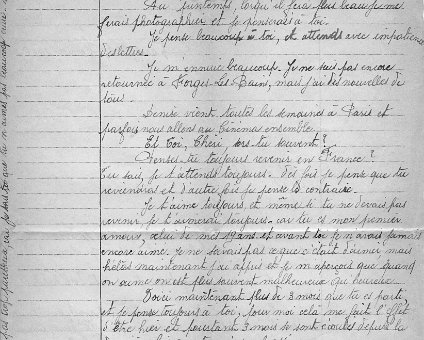 Au printemps, lorsqu'il fera plus beau, je me
ferais photographier et je penserais à toi.
Je pense beaucoup à toi, et attends avec impatience
des lettres.
Je m'ennuie beaucoup. Je ne suis pas encore
retournée à Forges-les-Bains, mais j'ai des nouvelles de
tous.
Denise vient toutes les semaines à Paris et
parfois nous allons au Cinéma ensemble.
Et toi, Chéri, sors-tu souvent?
Penses-tu toujours revenir en France?
Tu sais, je t'attends toujours. Des fois je pense que tu
reviendras et d'autre fois je pense le contraire.
Je t'aime toujours, et même si tu ne devais pas
revenir je t'aimerai toujours car tu es mon premier
amour, celui de mes ans et avant toi je n'avais jamais
encore aimé. Je ne savais pas ce que c'était d'aimer mais
hélas maintenant j'ai appris et je m'aperçois que quand
on aime on est plus souvent malheureux que heureux.
Voici maintenant plus de 3 mois que tu es parti
et je pense toujours à toi, pour moi cela me fait l'effet
d'être hier et pourtant 3 mois se sont écoulés depuis la